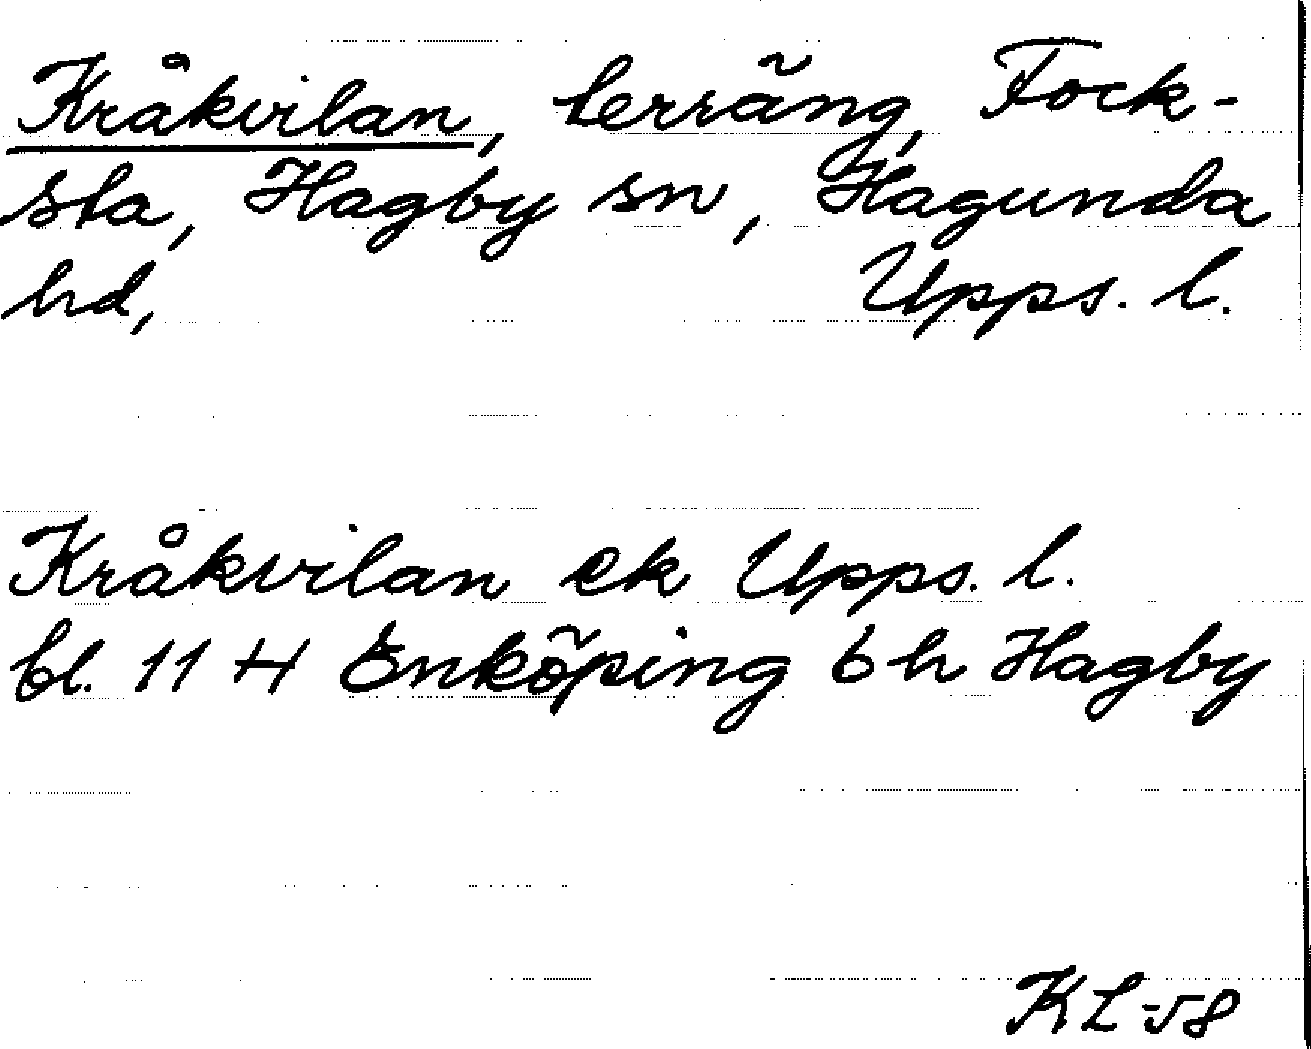 Kråkvilan, terräng, Fock-
sta, Hagby sn, Hagunda
hd, Upps. l.
Kråkvilan ek Upps. l.
bl. 11 H Enköping 6 h Hagby
KL-58